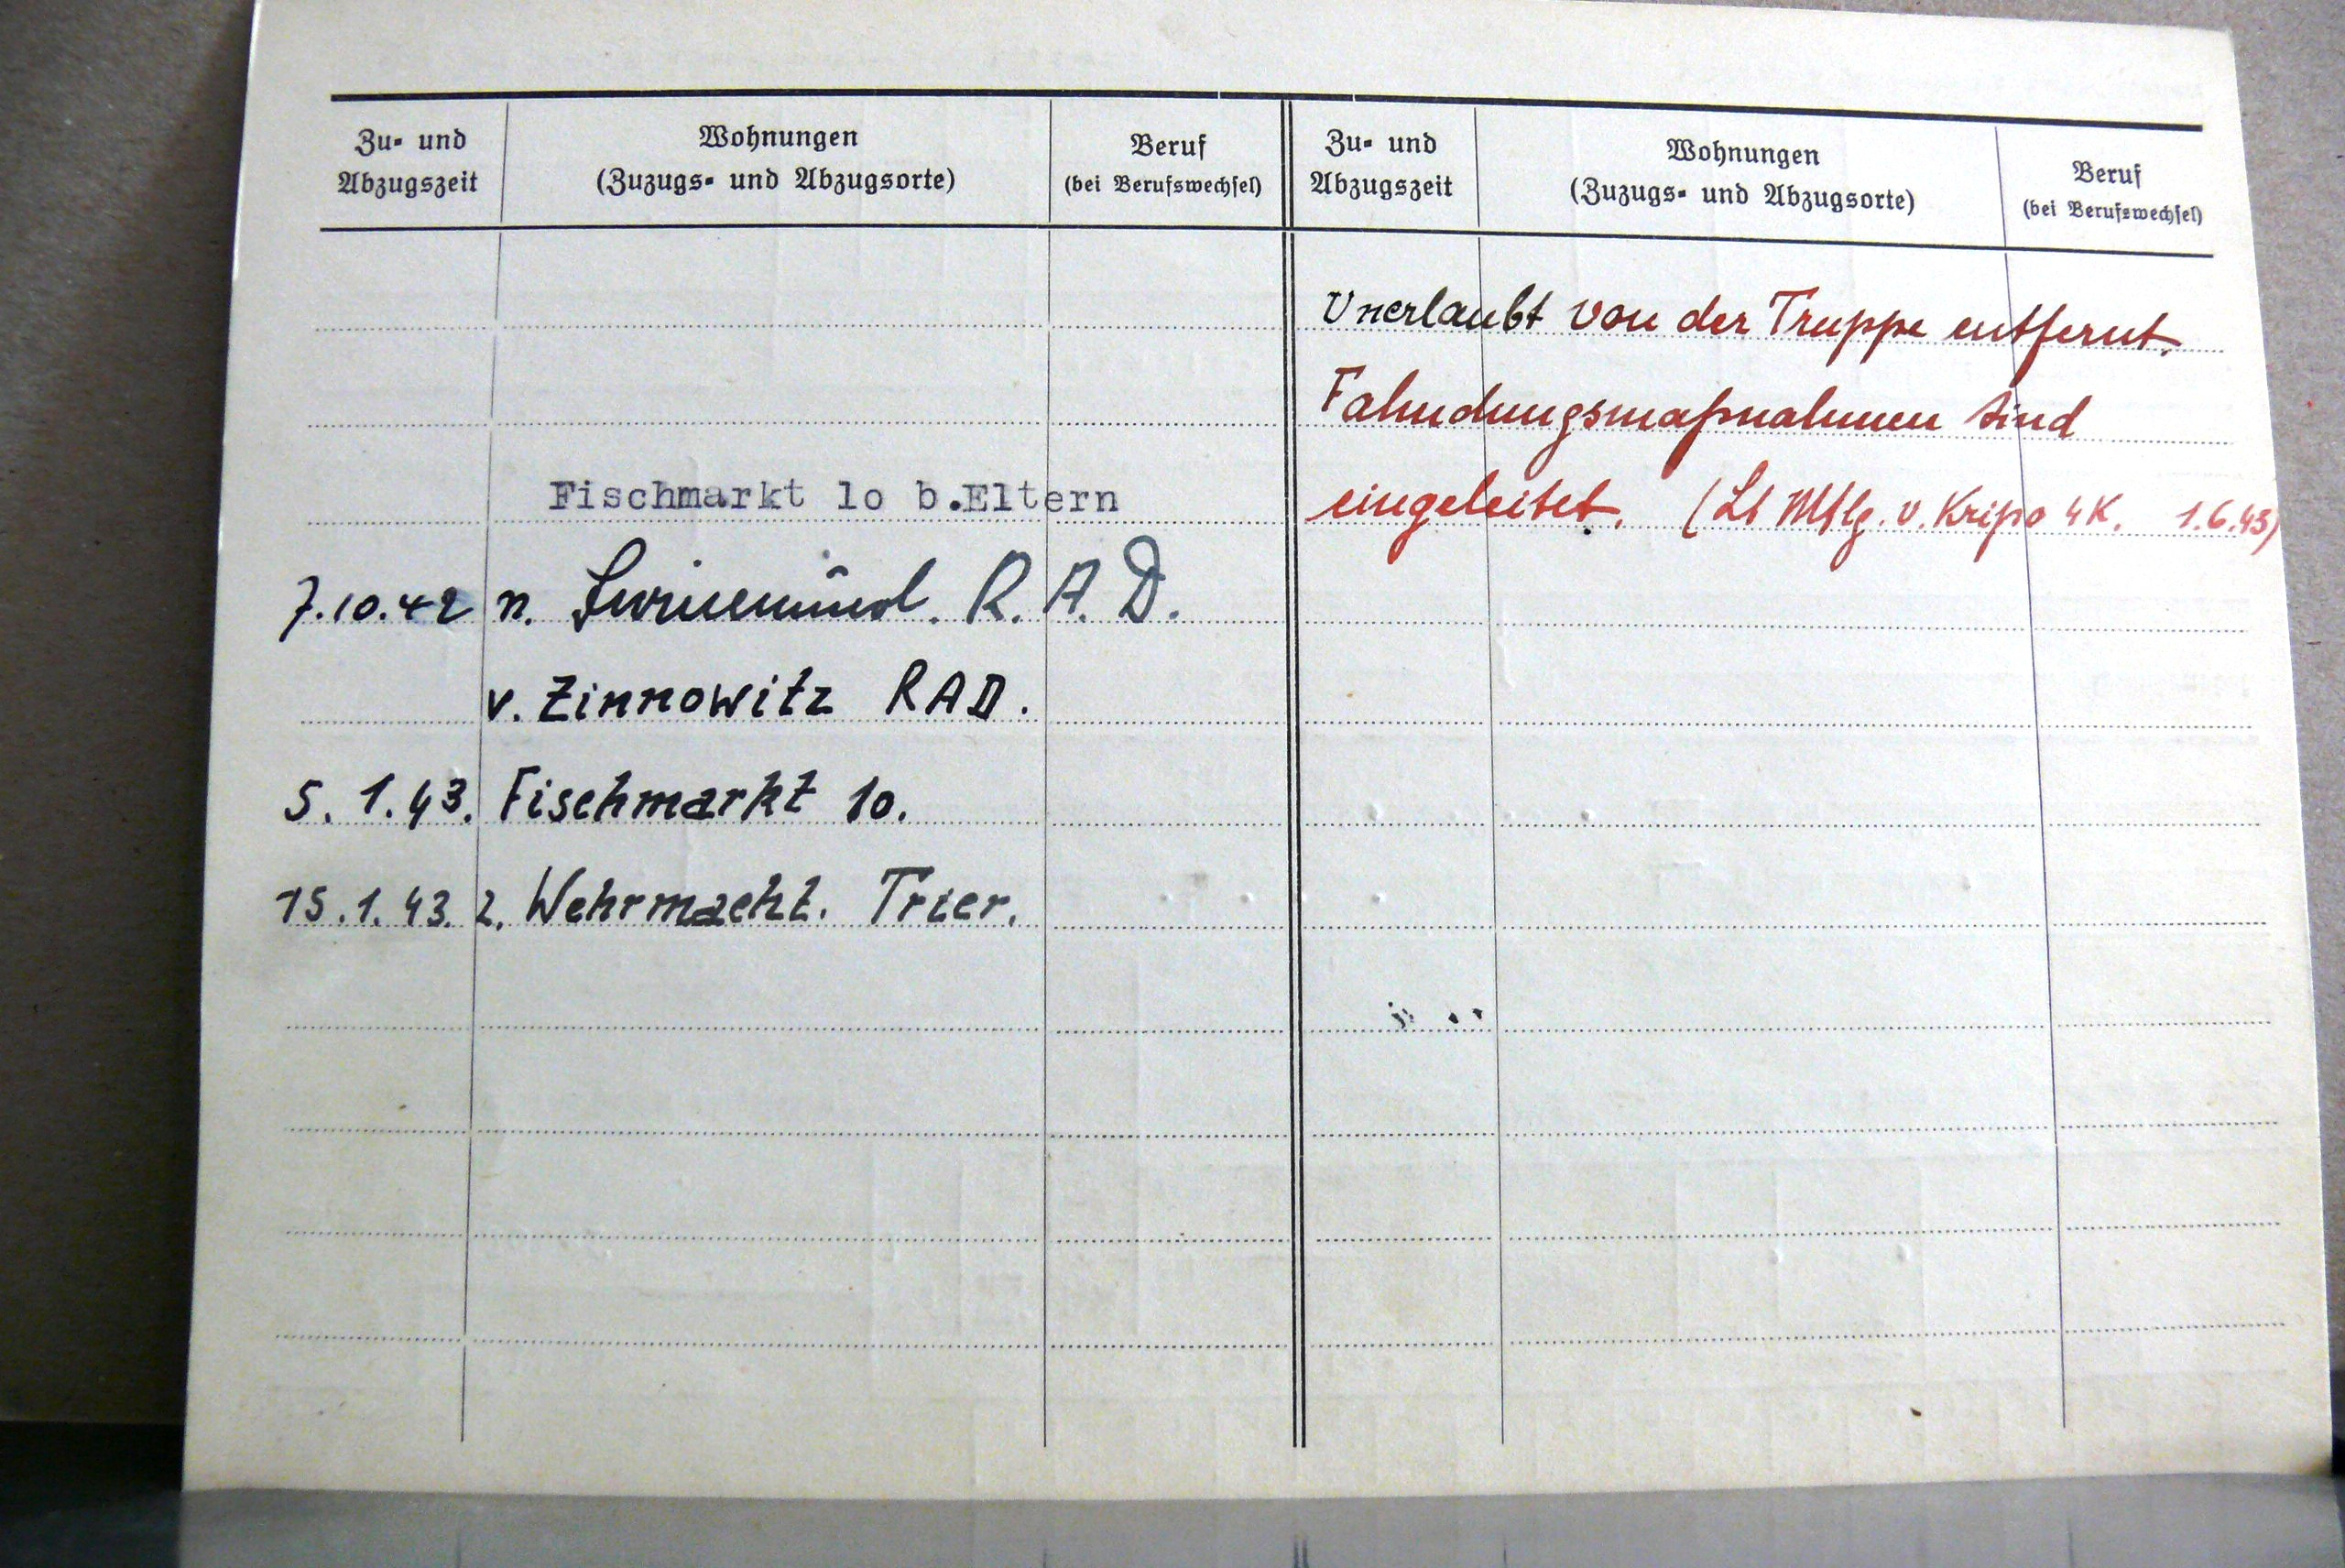 Zu- und
Abzugszeit
Wohnungen
(Zuzugs- und Abzugsorte)
Beruf
(bei Berufswechsel)
Zu- und
Abzugszeit
Wohnungen
(Zuzugs- und Abzugsorte)
Beruf
(bei Berufswechsel)
Fischmarkt lo b.Eltern
7.10.42 n. Swinemünd. R.A.D.
v. Zinnowitz RAD.
5. 1.43. Fischmarkt 10.
15.1.43. z. Wehrmacht. Trier.
Unerlaubt von der Truppe entfernt.
Fahndungsmaßnahmen sind
eingeleitet. (Lt Mtlg. v. Kripo 4 K. 1.6.43)